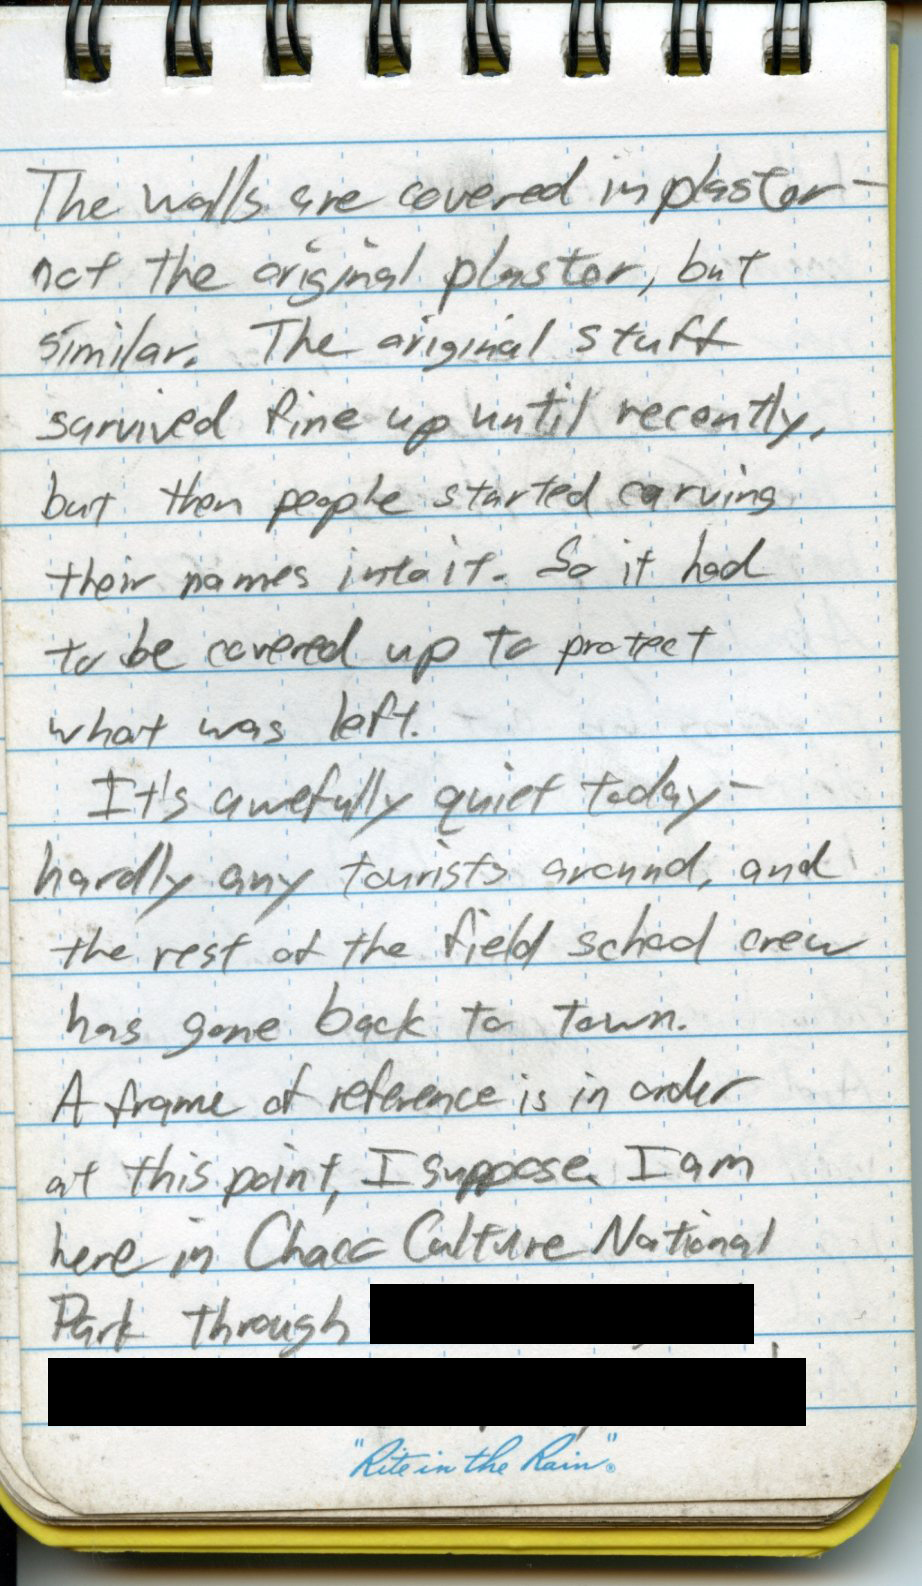 The walls are covered in plaster—
not the original plaster, but
similar. The original stuff
survived fine up until recently,
but then people started carving
their names into it. So it had
to be covered up to protect
what was left.
It's awefully quiet today—
hardly any tourists around, and
the rest of the field school crew
has gone back to town.
A frame of reference is in order
at this point, I suppose. I am
here in Chaco Culture National
Park through
"Rite in the Rain".®